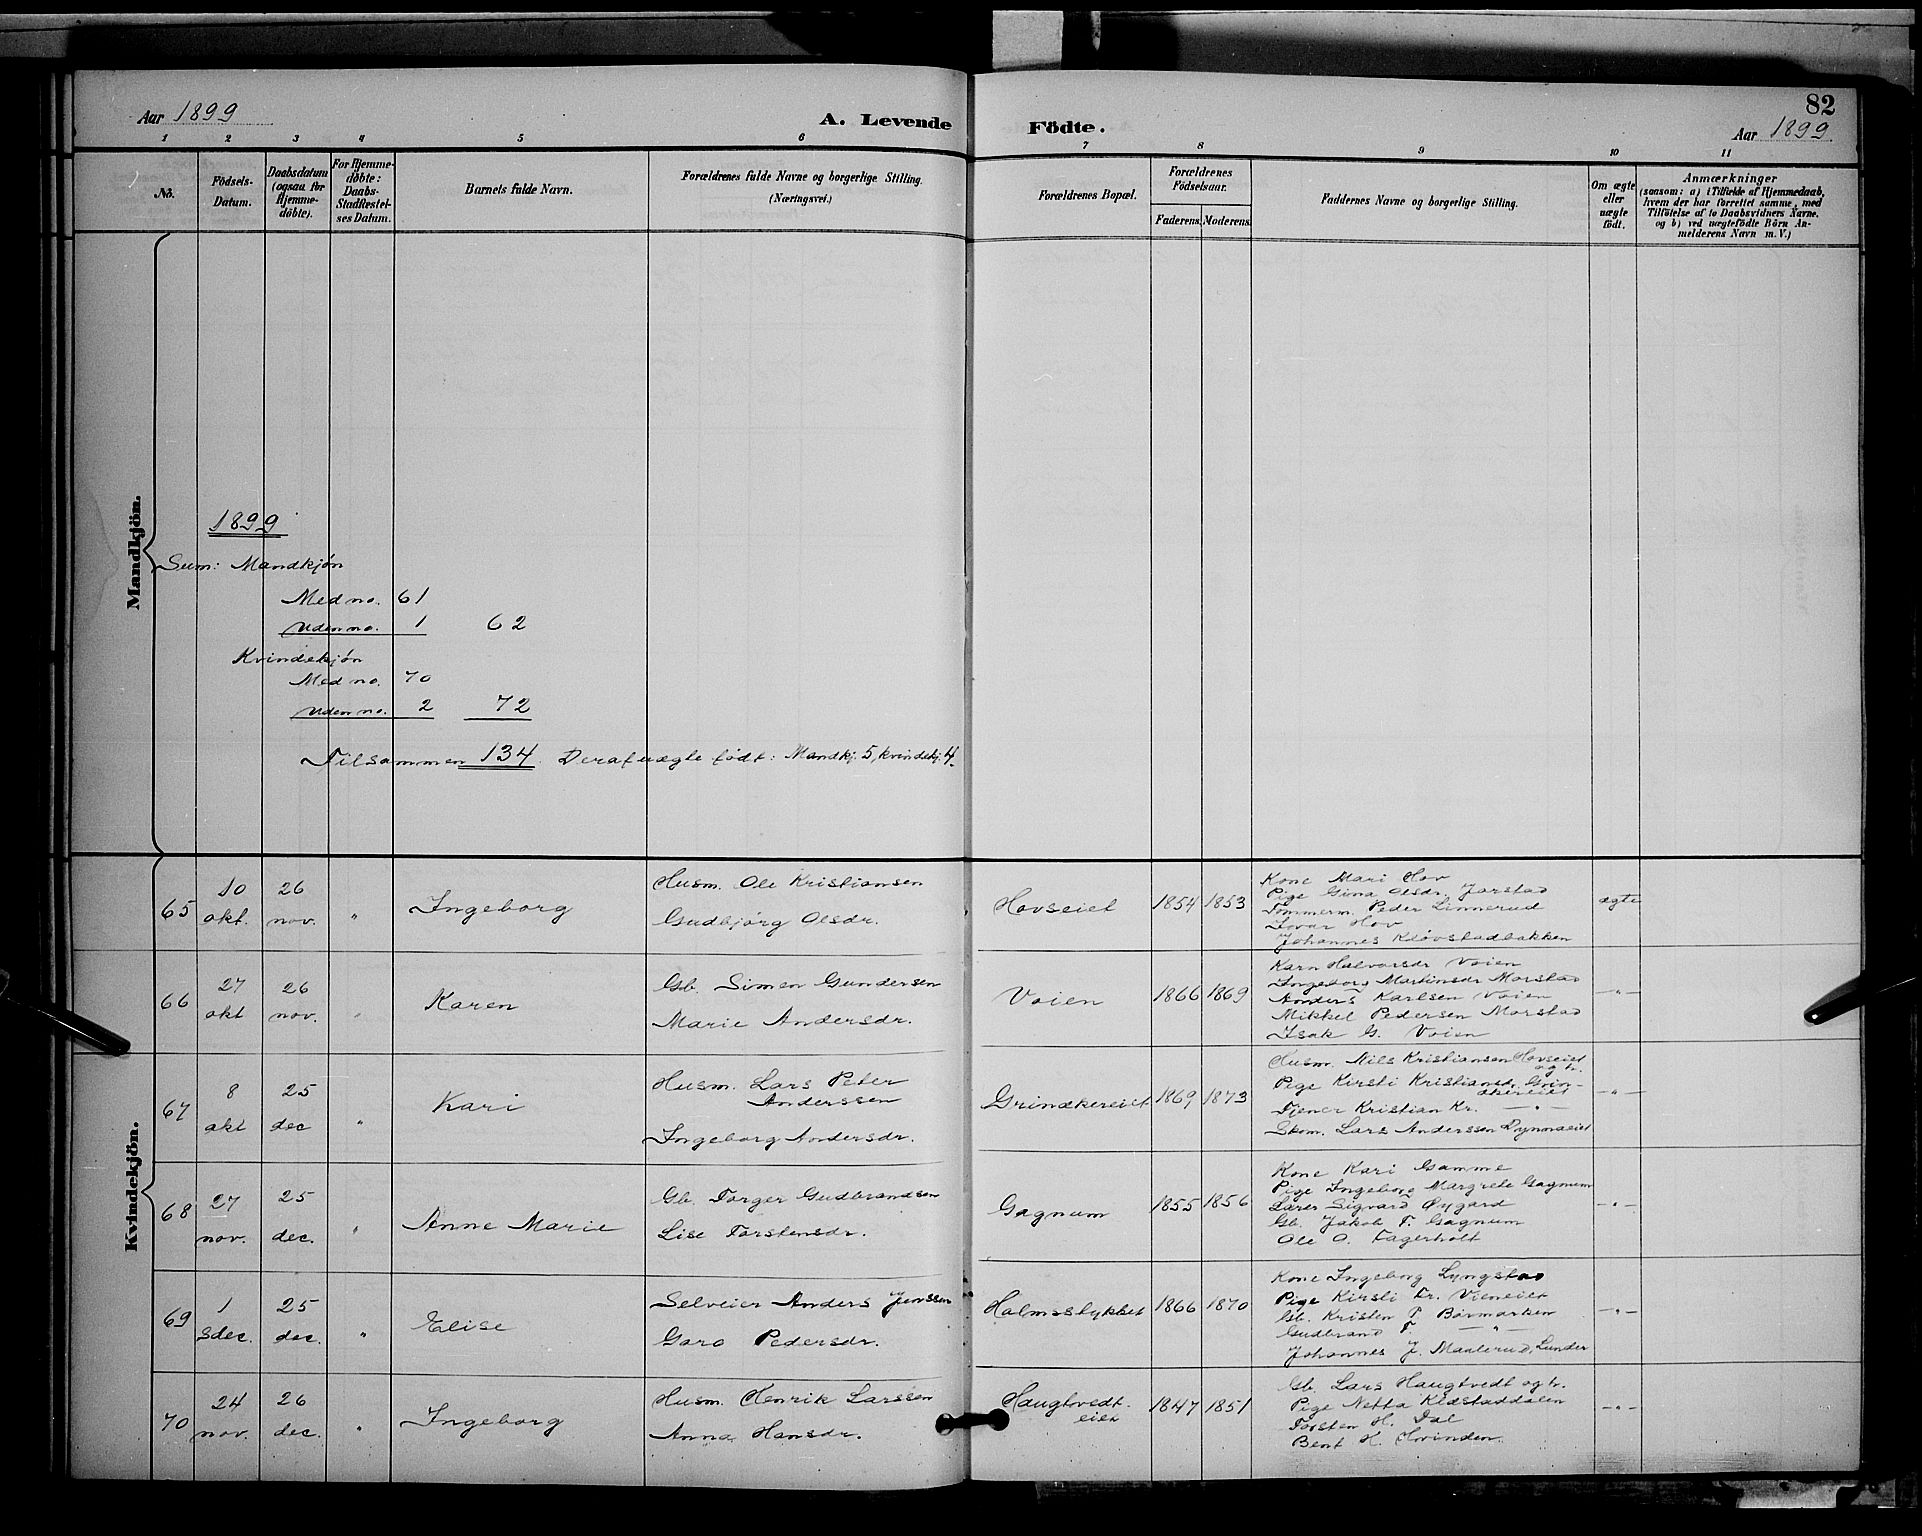 82
Aar 1899
A. Levende Födte.
Aar 1899
1 2 3 4 5 6 7 8 9 10 11
No.
Födsels-Datum.
Daabsdatum (ogsaa for Hjemme-döbte).
For Hjemme-döbte: Daabs-Stadfæstel-ses Datum.
Barnets fulde Navn.
Forældrenes fulde Navne og borgerlige Stilling.
(Næringsvei.)
Forældrenes Bopæl.
Forældrenes Födselsaar.
Faderens. Moderens.
Faddernes Navne og borgerlige Stilling.
Om ægte eller uægte födt.
Anmærkninger
(saasom: a) i Tilfælde af Hjemmedaab,
hvem der har forrettet samme, med
Tilföielse af to Daabsvidners Navne,
og b) ved uægtefödte Börn An-
melderens Navn m. V.)
Mandkjön.
1899
Sum: Mandkjøn
Med no. 61
Uden no. 1 62
Kvindekjøn
Med no. 70
Uden no. 2 72
Tilsammen 134. Deraf uægte født: Mandkj. 5, kvindekj. 4.
Kvindekjön.
65
10 okt.
26 nov.
"
Ingeborg
Husm. Ole Kristiansen
Gudbjørg Olsdr.
Hovseiet
1854 1853
Kone Mari Hov
Pige Gina Olsdr. Jarstad
Tømmerm. Peder Linnerud
Ivar Hov
Johannes Kløvstadbakken
ægte
66
27 okt
26 nov.
"
Karen
Gb. Simen Gundersen
Marie Andersdr.
Voien
1866 1869
Karn Halvorsdr Voien
Ingeborg Martinsdr Morstad
Anders Karlsen Voien
Mikkel Pedersen Morstad
Isak G. Voien
-"-
67
8 okt
25 dec
"
Kari
Husm. Lars Peter
Anderssen
Ingeborg Andersdr.
Grinakereiet
1869 1873
Husm. Nils Kristiansen Hovseiet
og h.
Pige Kirsti Kristiansdr. Grin-
akereiet
Tjener Kristian Kr. -"-
Skom. Lars Anderssen Dynnaeiet
-"-
68
27 nov.
25 dec.
"
Anne Marie
Gb. Torger Gudbrandsen
Lise Torstensdr.
Gagnum
1855 1856
Kone Kari Gamme
Pige Ingeborg Margrete Gagnum
Lærer Sigvard Øygard
Gb. Jakob T. Gagnum
Ole O. Fagerholt
-"-
69
1 dec.
25 dec.
"
Elise
Selveier Anders Jenssen
Goro Pedersdr.
Holmsstykket
1866 1870
Kone Ingeborg Lyngstad
Pige Kirsti Kr. Vieneiet
Gb. Kristen T. Børmarken
Gudbrand T. -"-
Johannes J. Maalerud, Lunder
-"-
70
24 nov.
26 dec.
"
Ingeborg
Husm. Henrik Larssen
Anna Hansdr.
Haugtvedt-
eiet
1847 1851
Gb. Lars Haugtvedt og h.
Pige Netta Klæstaddalen
Torsten H. Dal
Bent H. Hvinden.
-"-